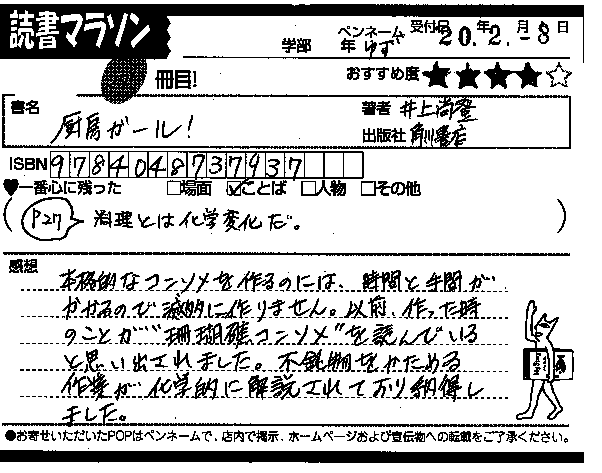 読書マラソン
学部 年 ペンネーム ゆず 受付日 20.年2.月-8日
冊目! おすすめ度 ★★★★☆
書名 厨房ガール! 著者 井上尚登
出版社 角川書店
ISBN 9784048737937
♥一番心に残った □場面 ☑ことば □人物 □その他
(P27 料理とは化学変化だ。)
感想
本格的なコンソメを作るのには、時間と手間が
かかるので滅多に作りません。以前、作った時
のことが“珊瑚礁コンソメ”を読んでいる
と思い出されました。不純物をかためる
作業が化学的に解説されており納得し
ました。
●お寄せいただいたPOPはペンネームで、店内で掲示、ホームページおよび宣伝物への転載をご了承ください。